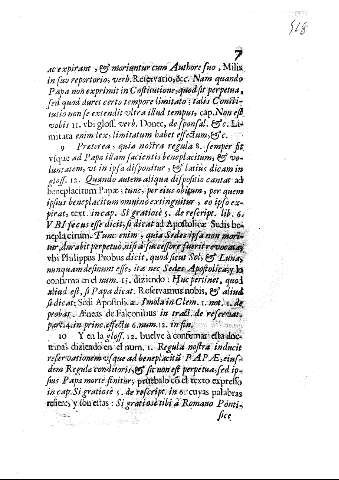 518
7
ac expirant, & moriuntur cum Authore suo, Milis
in suo reportorio, verb. Reservatio, &c. Nam quando
Papa non exprimit in Costitutione, quod sit perpetua,
sed quod duret certo tempore limitato; talis Consti-
tutio non se extendit vltra illud tempus, cap. Non est
vobis 11. vbi gloss. verb. Donec, de sponsal. & c. Li-
mitata enim lex; limitatum habet effectum, & c.
9 Preterea, quia nostra regula 8. semper sit
vsque ad Papæ illam facientis beneplacitum, & vo-
luntatem, vt in ipsa disponitur, & latius dicam in
gloss. 12. Quando autem aliqua dispositio cantat ad
beneplacitum Papæ; tunc, per eius obitum, per quem
ipsius beneplacitum omnino extinguitur, eo ipso ex-
pirat, text. in cap. Si gratiosè 5. de rescript. lib. 6.
VBI secus esse dicit, si dicat ad Apostolicæ Sedis be-
neplacitum. Tunc enim, quia Sedes ipsa non mori-
tur, durabit perpetuò, nisi à successore fuerit revocata,
vbi Philippus Probus dicit, quod sicut Sol, & Luna,
nunquam desinunt esse, ita nec Sedes Apostolica; y lo
confirma en el num. 11. diziendo: Huc pertinet, quod
aliud est, si Papa dicat: Reservamus nobis, & aliud
si dicat; Sedi Apostolicæ. Imola in Clem. 1. not. 1. de
probat. Æneas de Falconibus in tract. de reservat.
par. 4. in princ. effectu 6. num. 12. in fin.
10 Y en la gloss. 12. buelve à confirmar esta doc-
trina diziendo en el num. 1. Regula nostra inducit
reservationem vsque ad beneplacitũ PAPÆ, eius-
dem Regula conditoris, & sic non est perpetua, sed ip-
sius Papa morte finitur; pruebalo cõ el texto expresso
in cap. Si gratiosè 5. de rescript. in 6. cuyas palabras
refiere, y son estas: Si gratiosè tibi à Romano Ponti-
fice